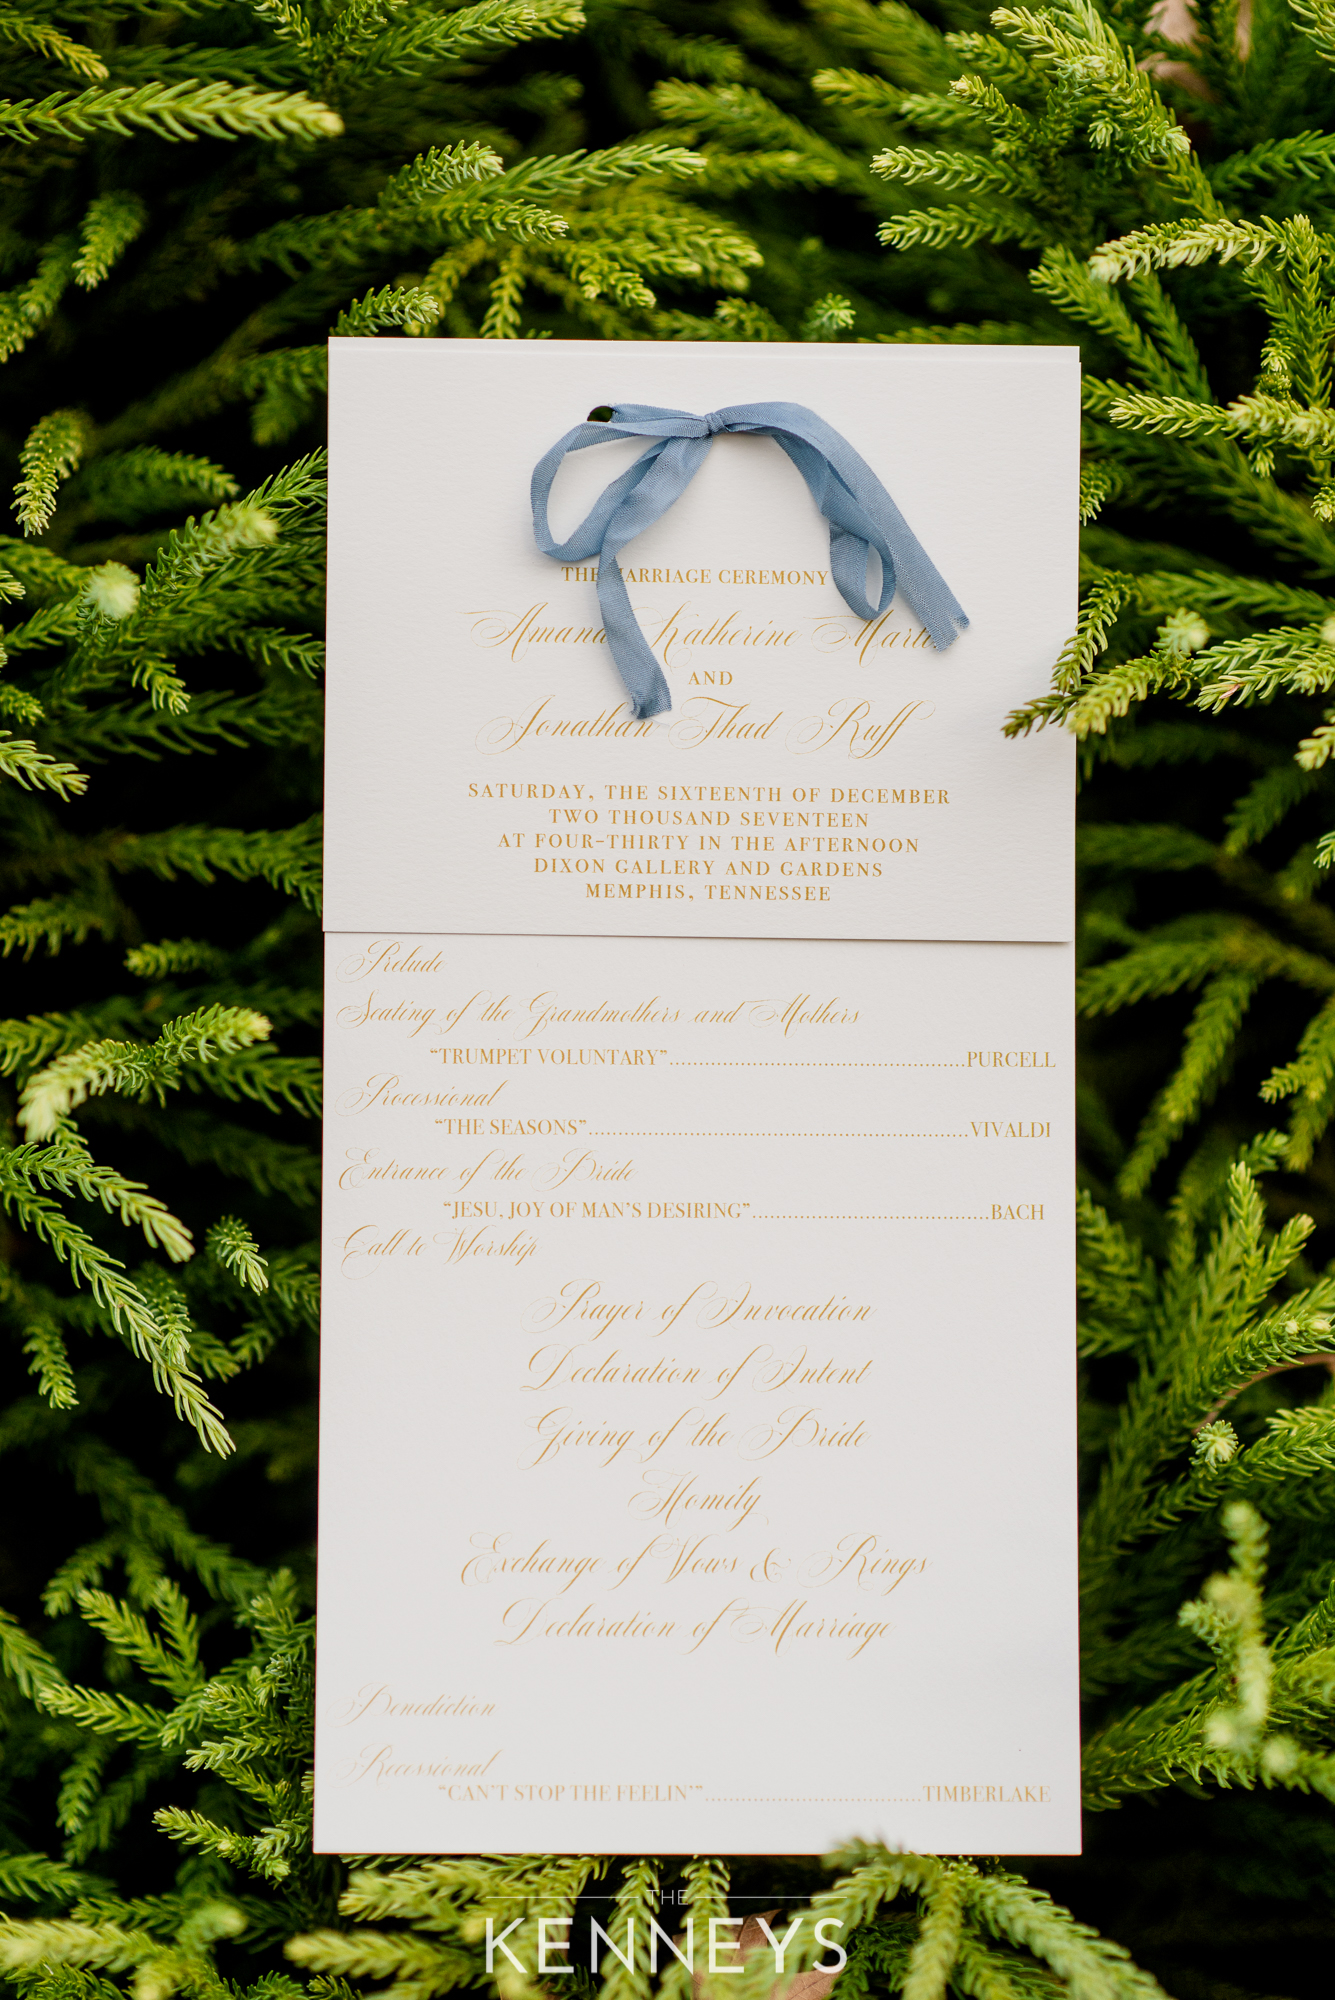 THE MARRIAGE CEREMONY
Katherine
AND
Jonathan Thad Ruff
SATURDAY, THE SIXTEENTH OF DECEMBER
TWO THOUSAND SEVENTEEN
AT FOUR-THIRTY IN THE AFTERNOON
DIXON GALLERY AND GARDENS
MEMPHIS, TENNESSEE
Prelude
Seating of the Grandmothers and Mothers
"TRUMPET VOLUNTARY"..................................................PURCELL
Processional
"THE SEASONS"................................................................VIVALDI
Entrance of the Bride
"JESU, JOY OF MAN'S DESIRING"........................................BACH
Call to Worship
Prayer of Invocation
Declaration of Intent
Giving of the Bride
Homily
Exchange of Vows & Rings
Declaration of Marriage
Benediction
Recessional
"CAN'T STOP THE FEELIN'"....................................TIMBERLAKE
THE
KENNEYS